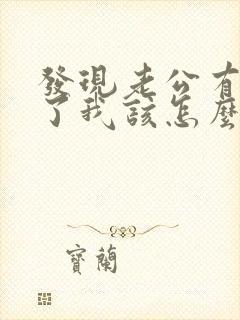 發現老公有
了我該怎麼
寶蘭